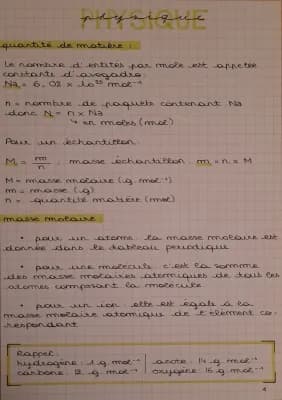 PHYSIQUE
physique
quantité de matière :
Le nombre d'entités par mole est appelée
constante d'avogadro:
Na = 6,02 x 10²³ mol⁻¹
n = nombre de paquets contenant Na
donc N = n x Na
↳ en moles (mol)
Pour un échantillon:
M = m/n ; masse échantillon m = n x M
M = masse molaire (g.mol⁻¹)
m = masse (g)
n = quantité matière (mol)
masse molaire :
• pour un atome la masse molaire est
donnée dans le tableau périodique
• pour une molécule c'est la somme
des masse molaires atomiques de tous les
atomes composant la molécule
• pour un ion elle est égale à la
masse molaire atomique de l'élément co-
respondant
Rappel:
hydrogène : 1 g.mol⁻¹ | azote : 14 g.mol⁻¹
carbone : 12 g.mol⁻¹ | oxygène : 16 g.mol⁻¹